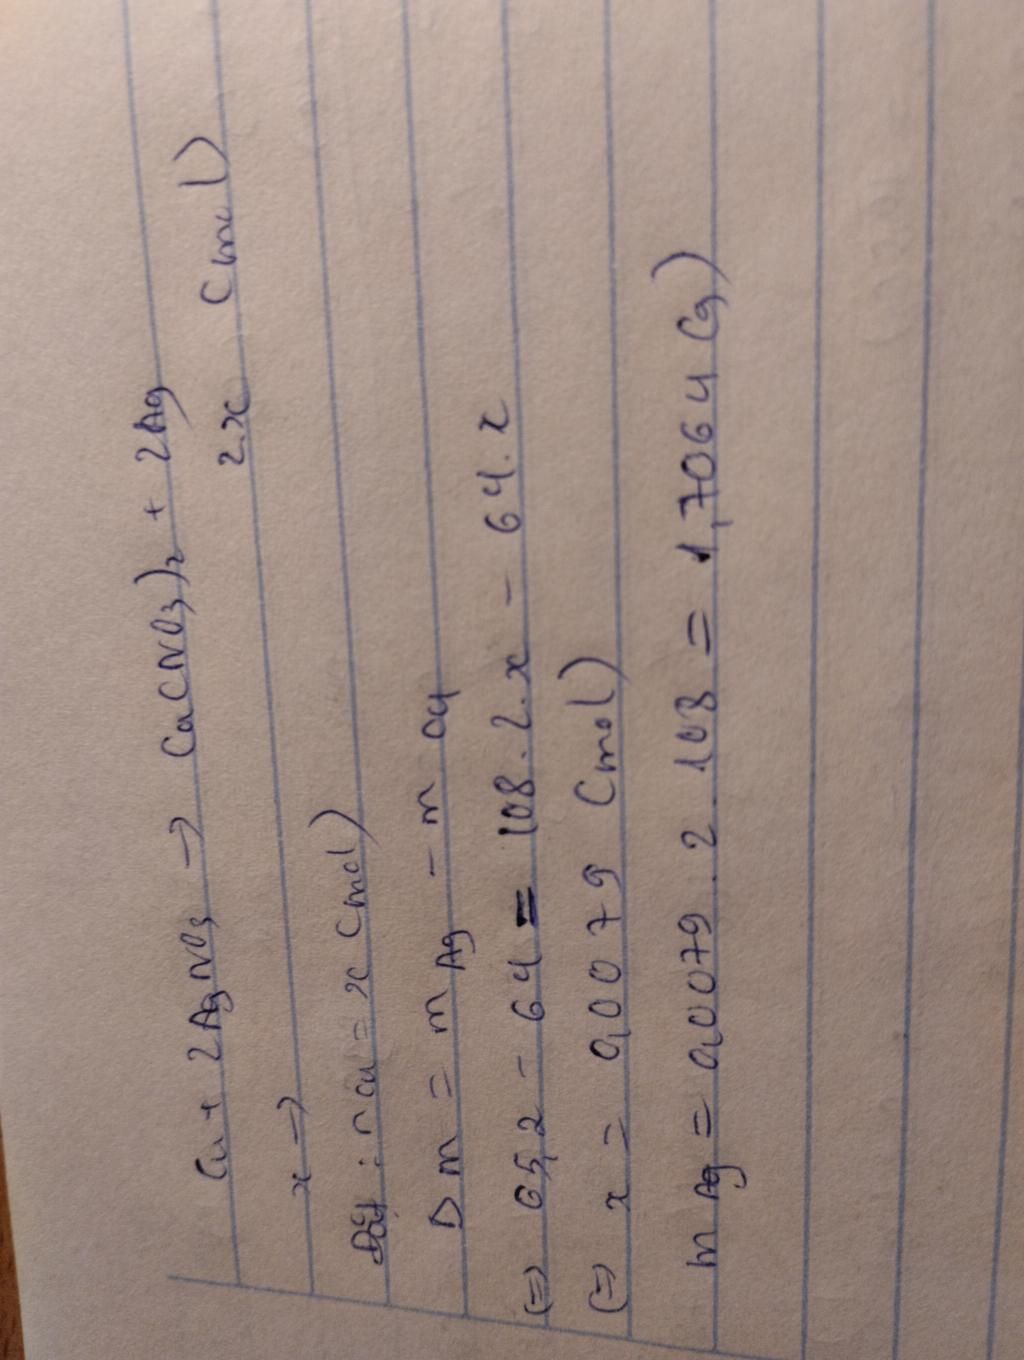 Cu + 2AgNO3 → Cu(NO3)2 + 2Ag
x → 2x (mol)
Đặt : nCu = x (mol)
Δm = m Ag - m Cu
(=) 65,2 - 64 = 108 . 2 . x - 64 . x
(=) x = 0,0079 (mol)
m Ag = 0,0079 . 2 . 108 = 1,7064 (g)